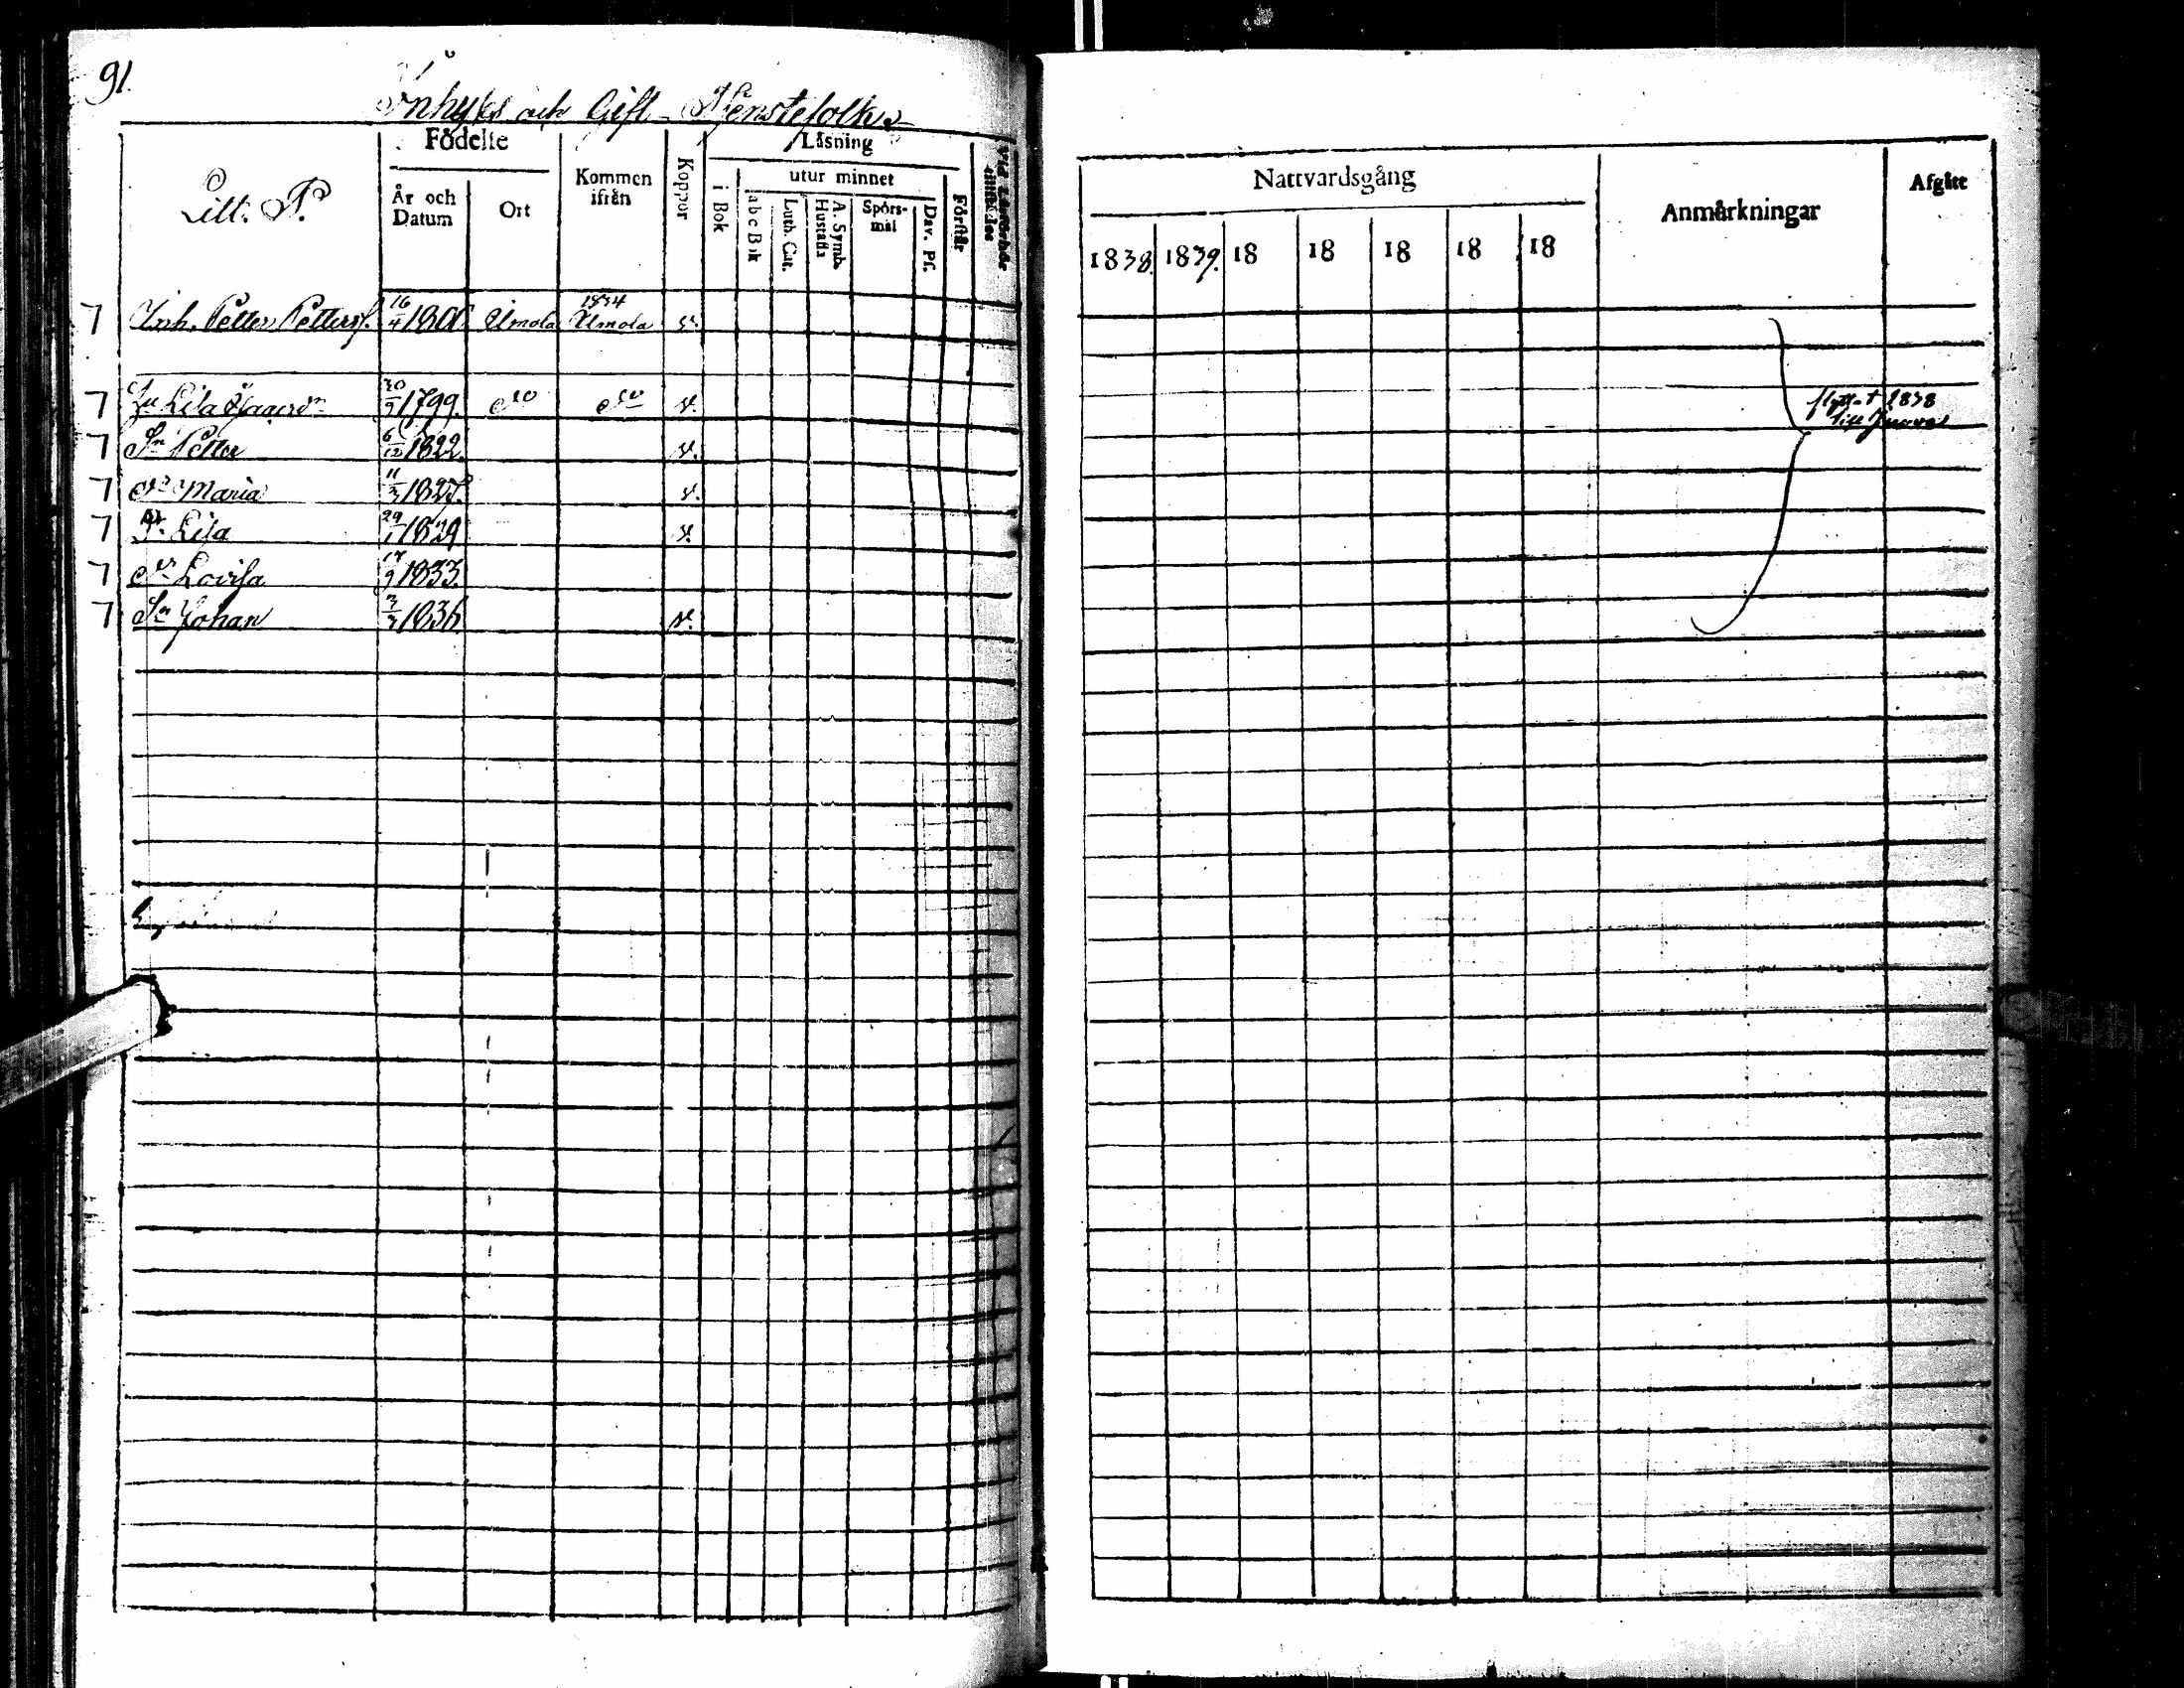 91.
Inhyses och Gift Tjenstefolk
Litt. P.
Födelse
År och Datum
Ort
Kommen ifrån
Koppor
Läsning
i Bok
utur minnet
a b c Bok
Luth. Cat.
A. Symb. Hustafla
Spörsmål
Dav. Ps.
Förstår
Nattvardsgång
1838. 1839. 18 18 18 18 18
Anmärkningar
Afgått
7 Inh. Petter Petterss. 16/4 1800 Umola 1834 Umola v.
7 Hu Lisa 30/9 1799. do do v.
7 Sn Petter 6/12 1822. v.
7 Dr Maria 11/3 1827. v.
7 Dr Lisa 29/1 1829 v.
7 Dr Lovisa 17/9 1833.
7 Sn Johan 3/3 1836 v.
flytt-t 1838
till